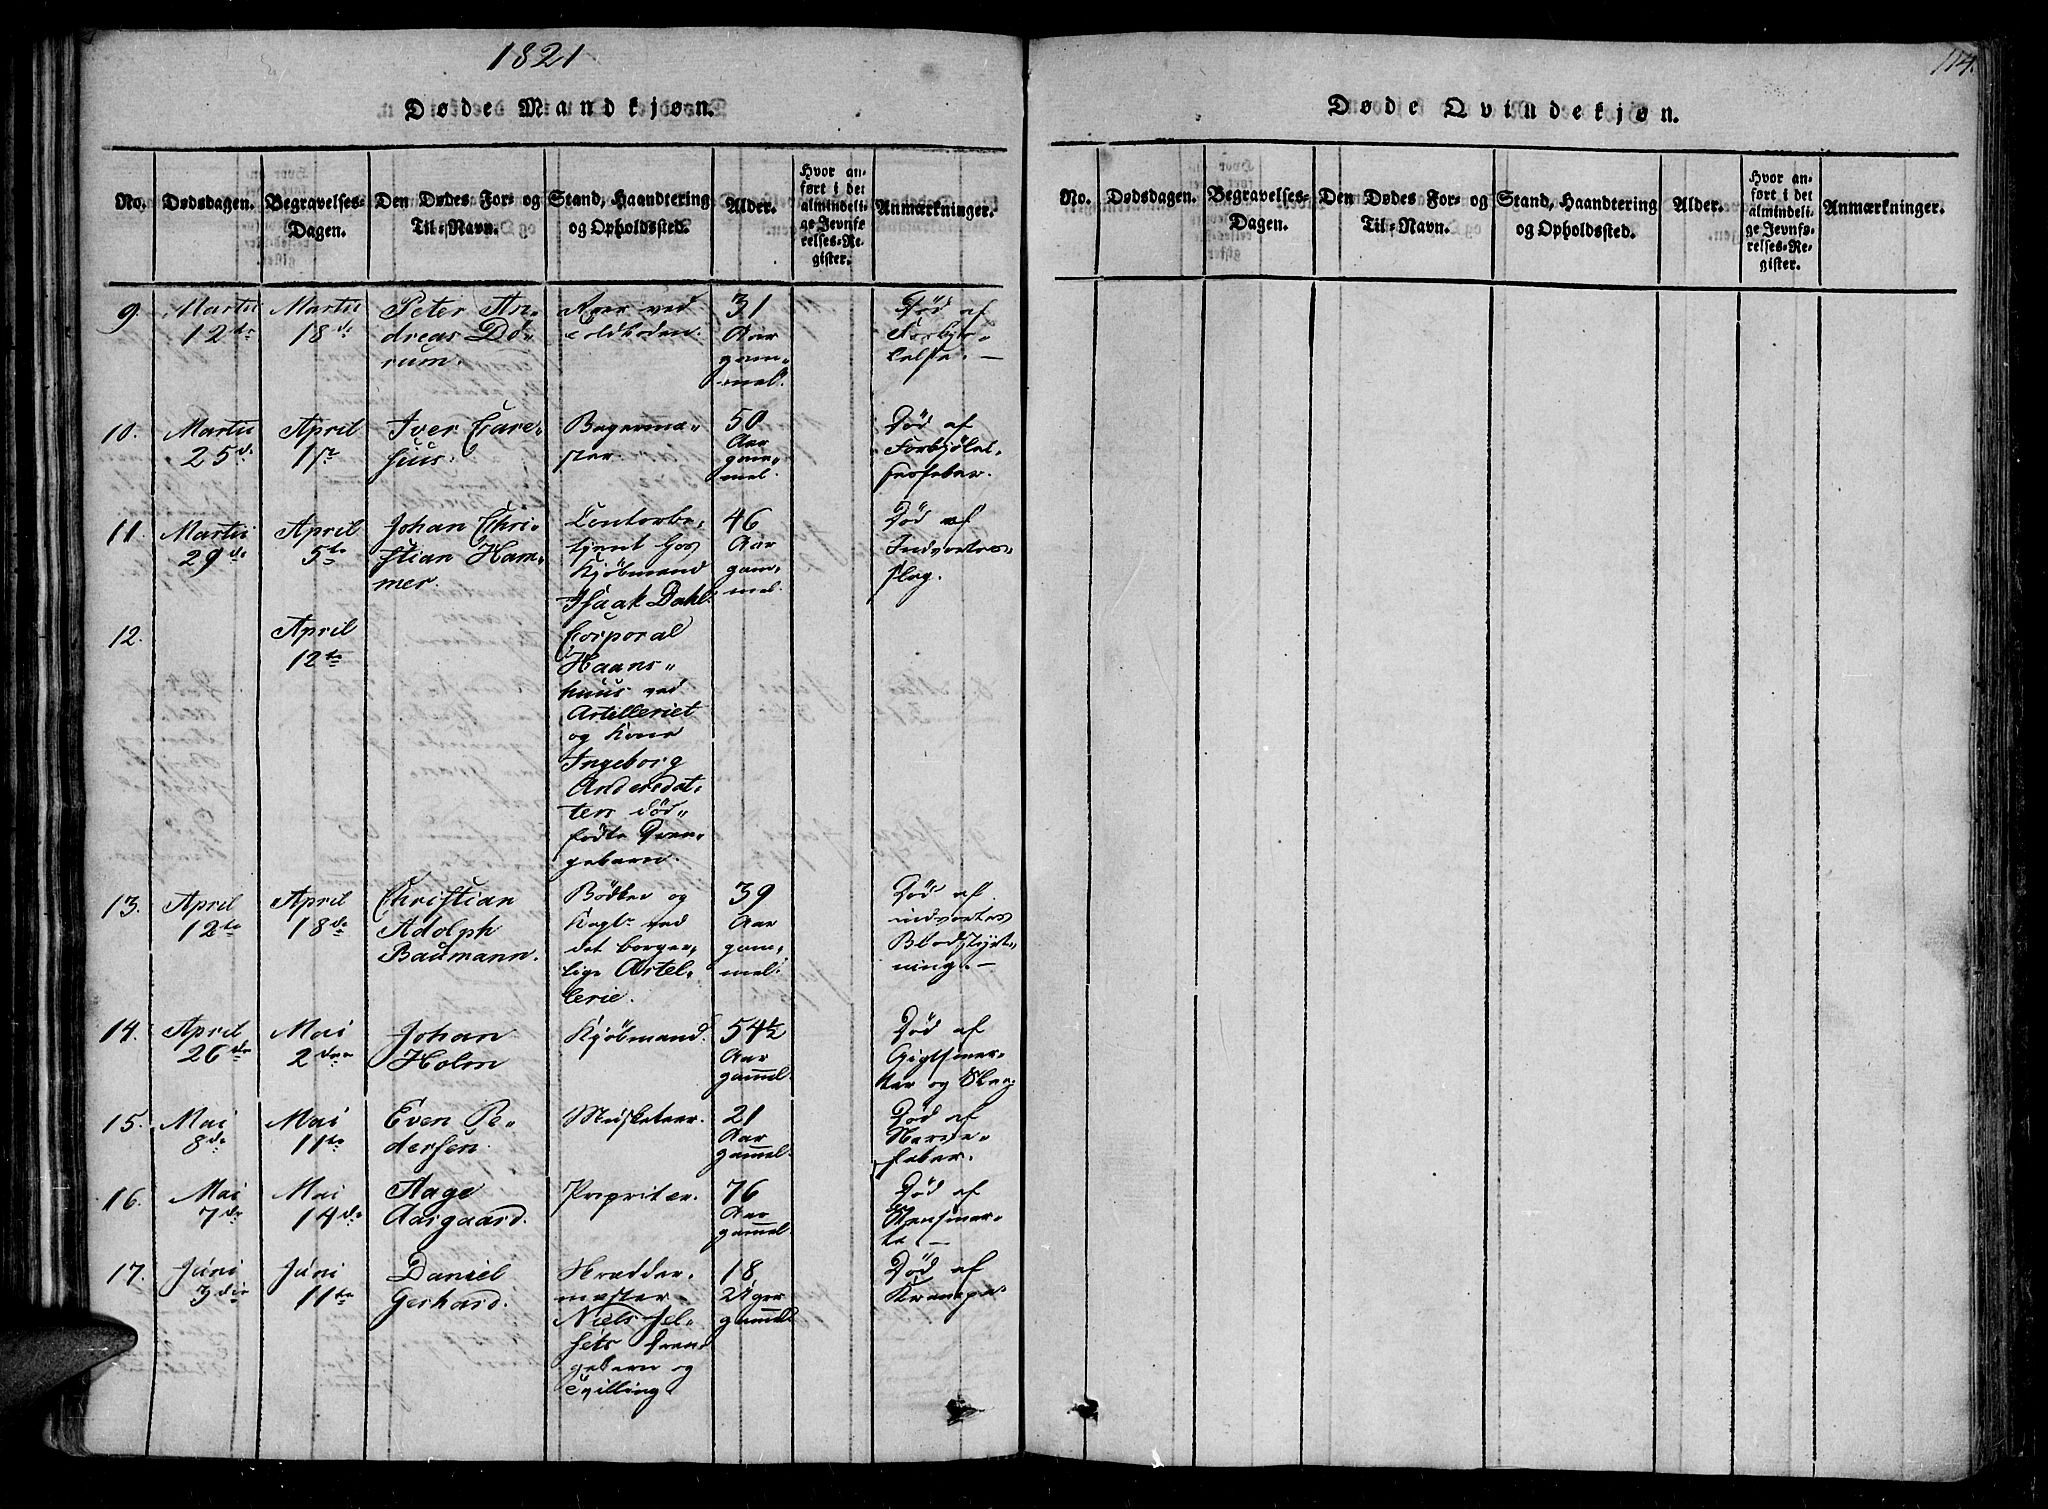 1821
114.
Døde Mandkjøn.
No.
Dødsdagen.
Begravelses-
Dagen.
Den Dødes For- og
Til-Navn.
Stand, Haandtering
og Opholdssted.
Alder.
Hvor an-
ført i det
almindeli-
ge Jevnfø-
relses-Re-
gister.
Anmærkninger.
9.
Martii
12te
Martii
18de
Peter An-
dreas Dö-
rum.
ved
Toldboden.
31
Aar
gam-
mel.
Död af
10.
Martii
25de
April
1ste
Iver Care-
lius.
Bagerme-
ster.
50
Aar
gam-
mel.
Död af
11.
Martii
29de
April
5te
Johan Chri-
stian Ham-
mer.
Contorbe-
tjent hos
Kjöbmand
Isaak Dahl.
46
Aar
gam-
mel.
Död af
Indvortes
slag.
12.
April
12te
Corporal
Haans-
huus ved
Artilleriet
og Kone
Ingeborg
Andersdat-
ters död-
födte Dren-
gebarn.
13.
April
12te
April
18de
Christian
Adolph
Baumann.
Bödker og
ved
det borger-
lige Artel-
lerie.
39
Aar
gam-
mel.
Död af
indvortes
Blodstyrt-
ning.
14.
April
26de
Mai
2den
Johan
Holm
Kjöbmand.
54½
Aar
gammel.
Död af
Gigtsmer-
ter og Slag.
15.
Mai
8de
Mai
11te
Even Pe-
dersen.
Musketeer.
21
Aar
gammel.
Död af
Nerve-
feber.
16.
Mai
7de
Mai
14de
Aage
Aasgaard.
Propritær.
76
Aar
gammel.
Död af
17.
Juni
3die
Juni
11te
Daniel
Gerhard.
Skrædder-
mester
Niels Jel-
sets Dren-
gebarn og
Tvilling
18
Uger
gammel.
Död af
Krampe.
Døde Qvindekjøn.
No.
Dødsdagen.
Begravelses-
Dagen.
Den Dødes For- og
Til-Navn.
Stand, Haandtering
og Opholdssted.
Alder.
Hvor an-
ført i det
almindeli-
ge Jevnfø-
relses-Re-
gister.
Anmærkninger.